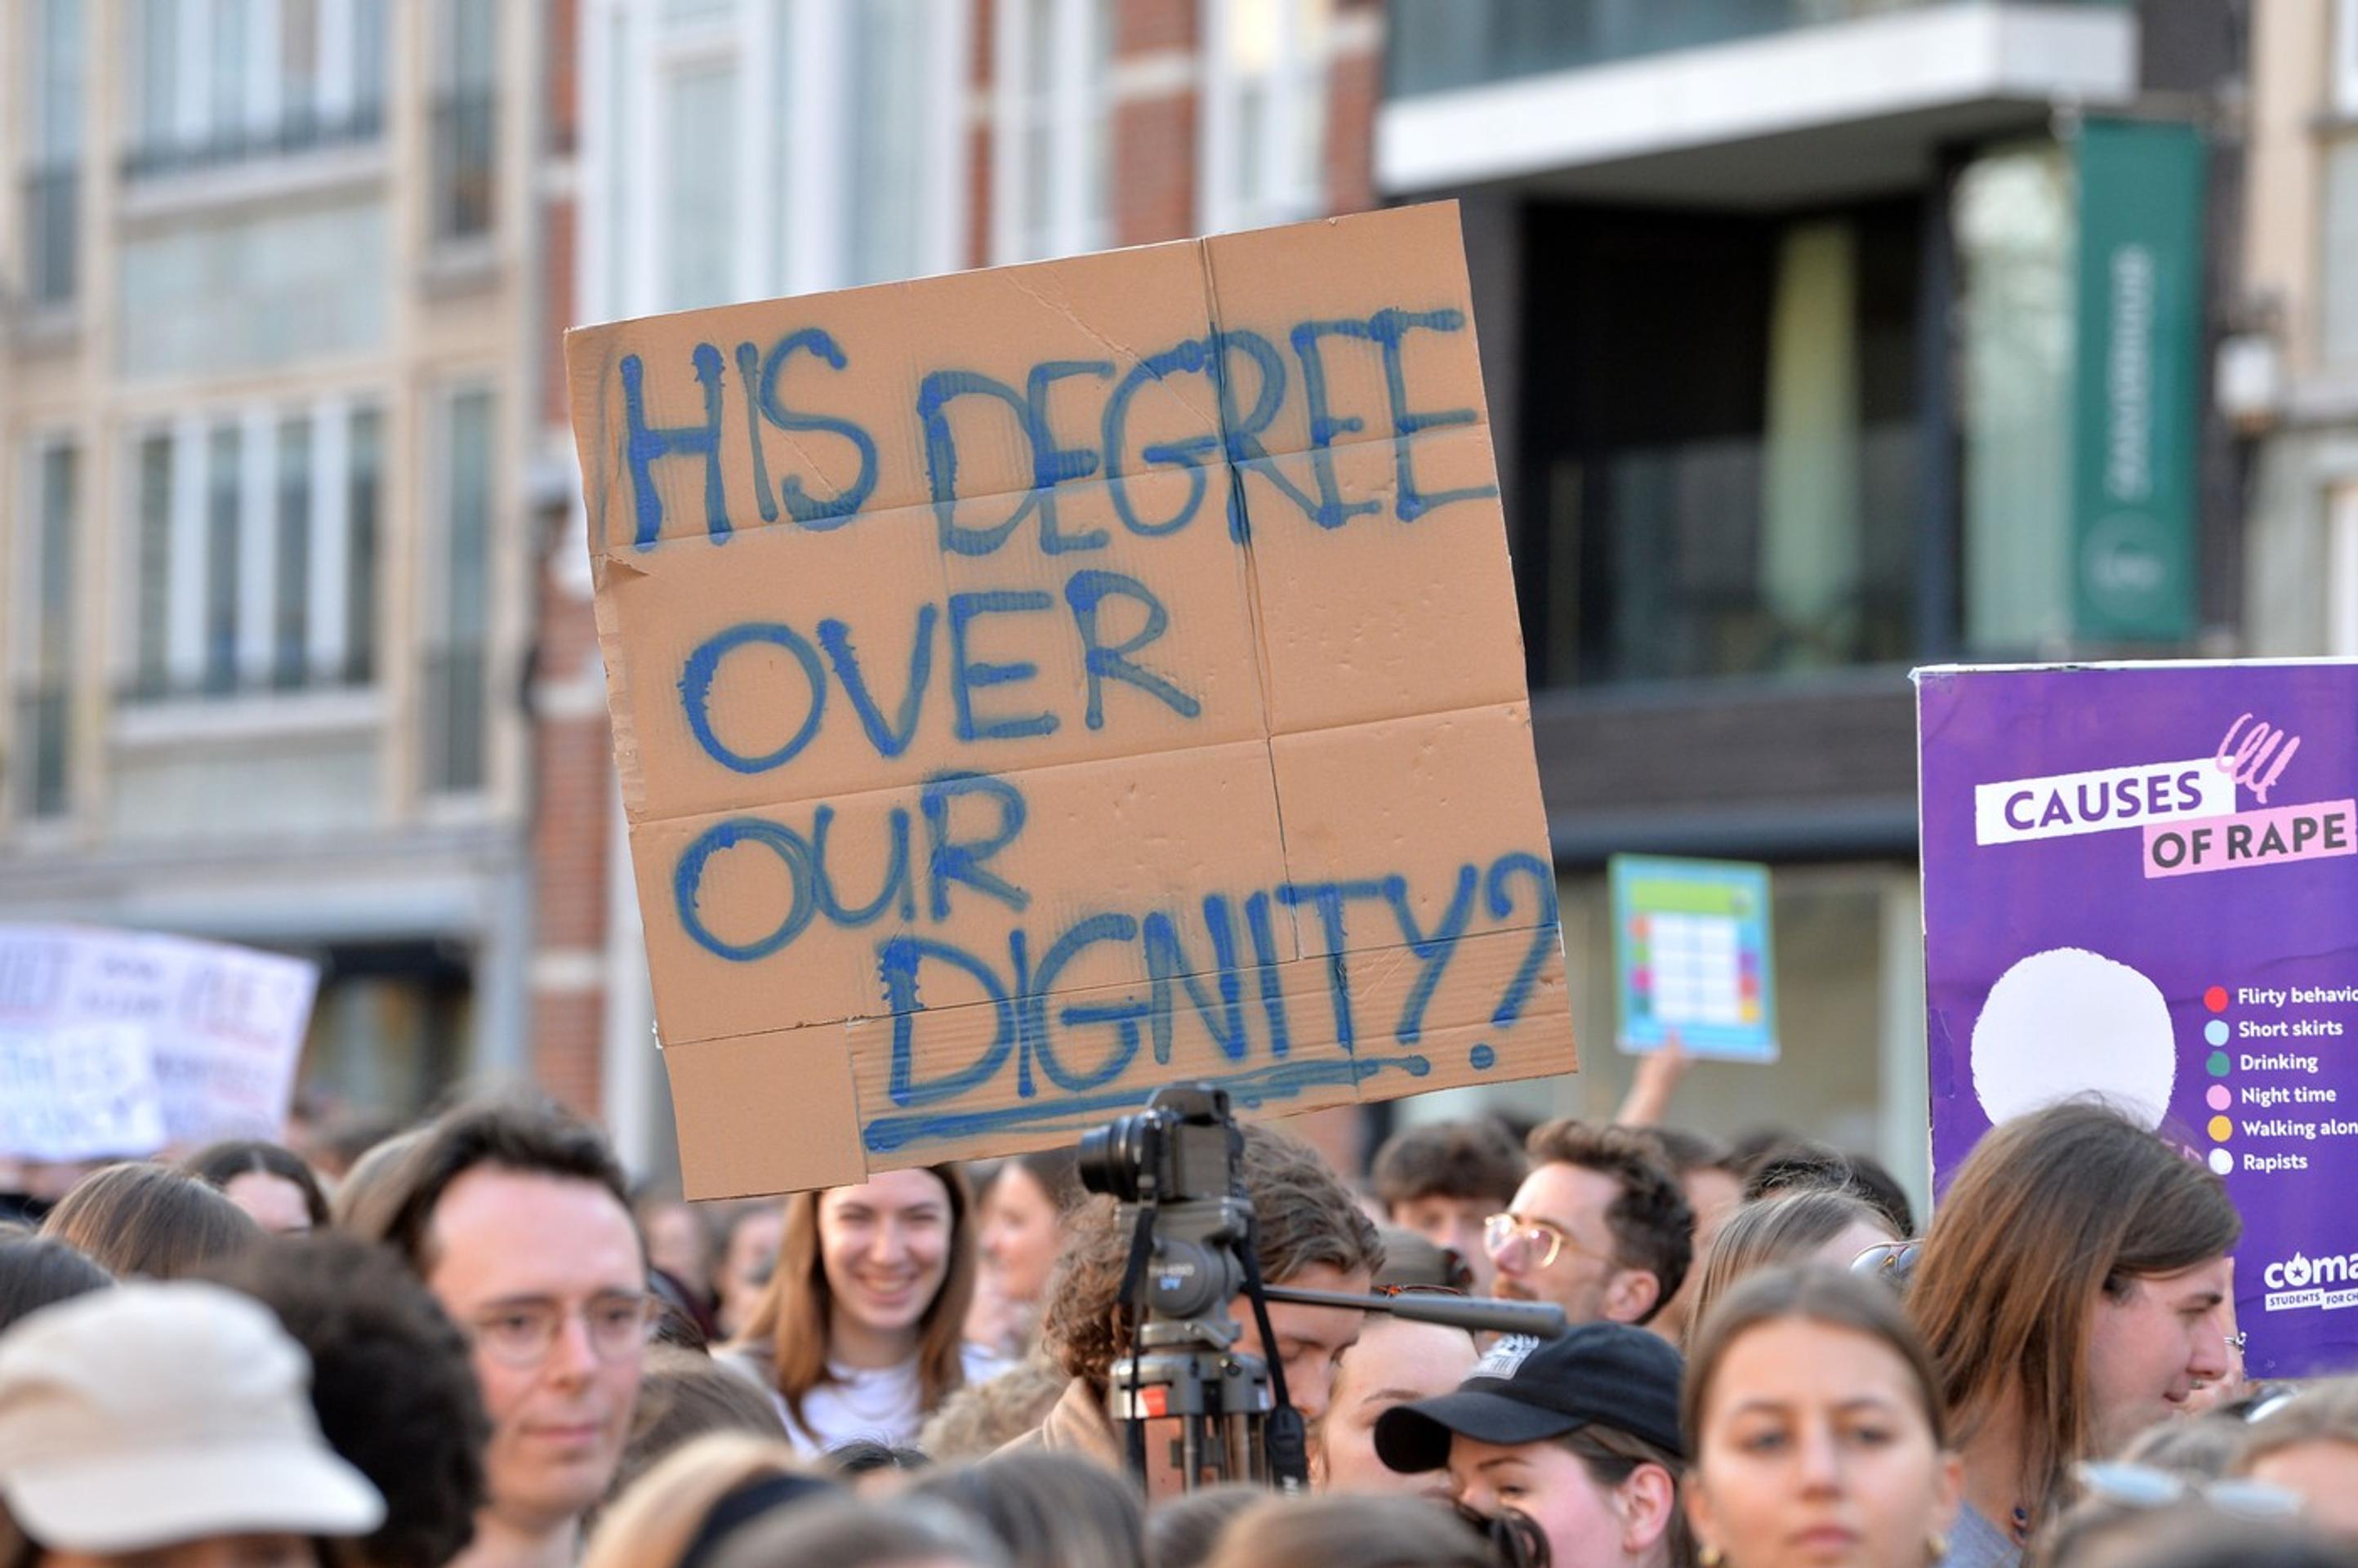 HIS DEGREE
OVER
OUR
DIGNITY?
CAUSES
OF RAPE
Flirty behavio
Short skirts
Drinking
Night time
Walking alon
Rapists
coma
STUDENTS FOR CH